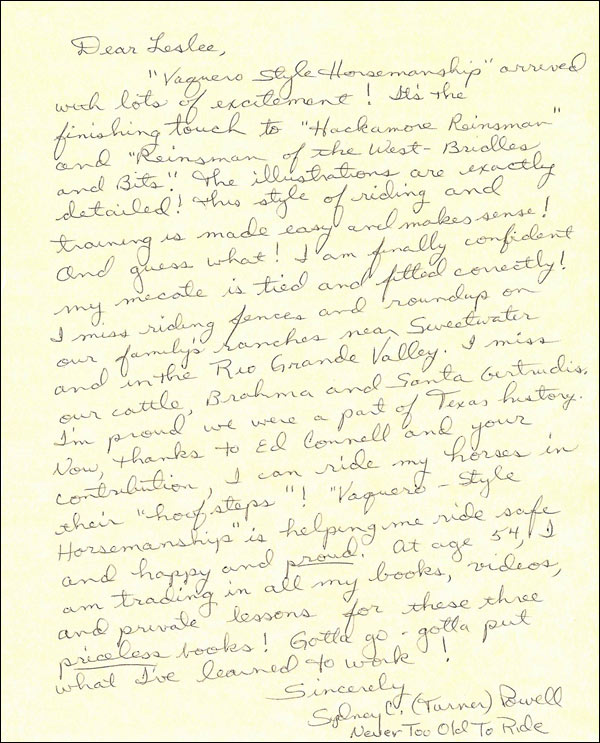 Dear Leslee,
"Vaquero Style Horsemanship" arrived
with lots of excitement! It's the
finishing touch to "Hackamore Reinsman"
and "Reinsman of the West - Bridles
and Bits." The illustrations are exactly
detailed! This style of riding and
training is made easy and makes sense!
And guess what! I am finally confident
my mecate is tied and fitted correctly!
I miss riding fences and roundup on
our family's ranches near Sweetwater
and in the Rio Grande Valley. I miss
our cattle, Brahma and Santa Gertrudis.
I'm proud we were a part of Texas history.
Now, thanks to Ed Connell and your
contribution, I can ride my horses in
their "hoof steps"! "Vaquero - Style
Horsemanship" is helping me ride safe
and happy and proud. At age 54, I
am trading in all my books, videos,
and private lessons for these three
priceless books! Gotta go - gotta put
what I've learned to work!
Sincerely
Sydney C. (Turner) Powell
Never Too Old To Ride